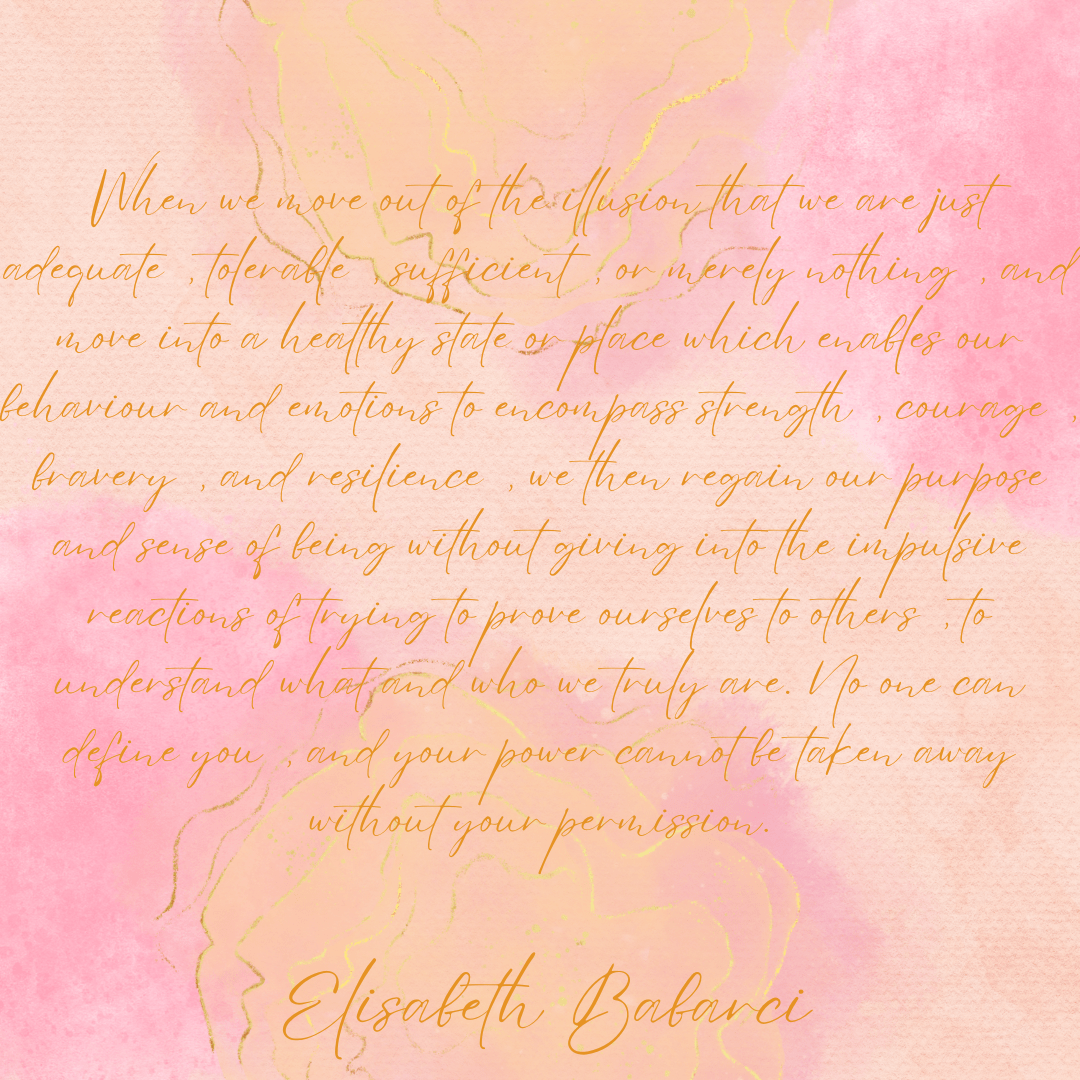 When we move out of the illusion that we are just
adequate , tolerable , sufficient , or merely nothing , and
move into a healthy state or place which enables our
behaviour and emotions to encompass strength , courage ,
bravery , and resilience , we then regain our purpose
and sense of being without giving into the impulsive
reactions of trying to prove ourselves to others , to
understand what and who we truly are. No one can
define you , and your power cannot be taken away
without your permission.
Elisabeth Babarci